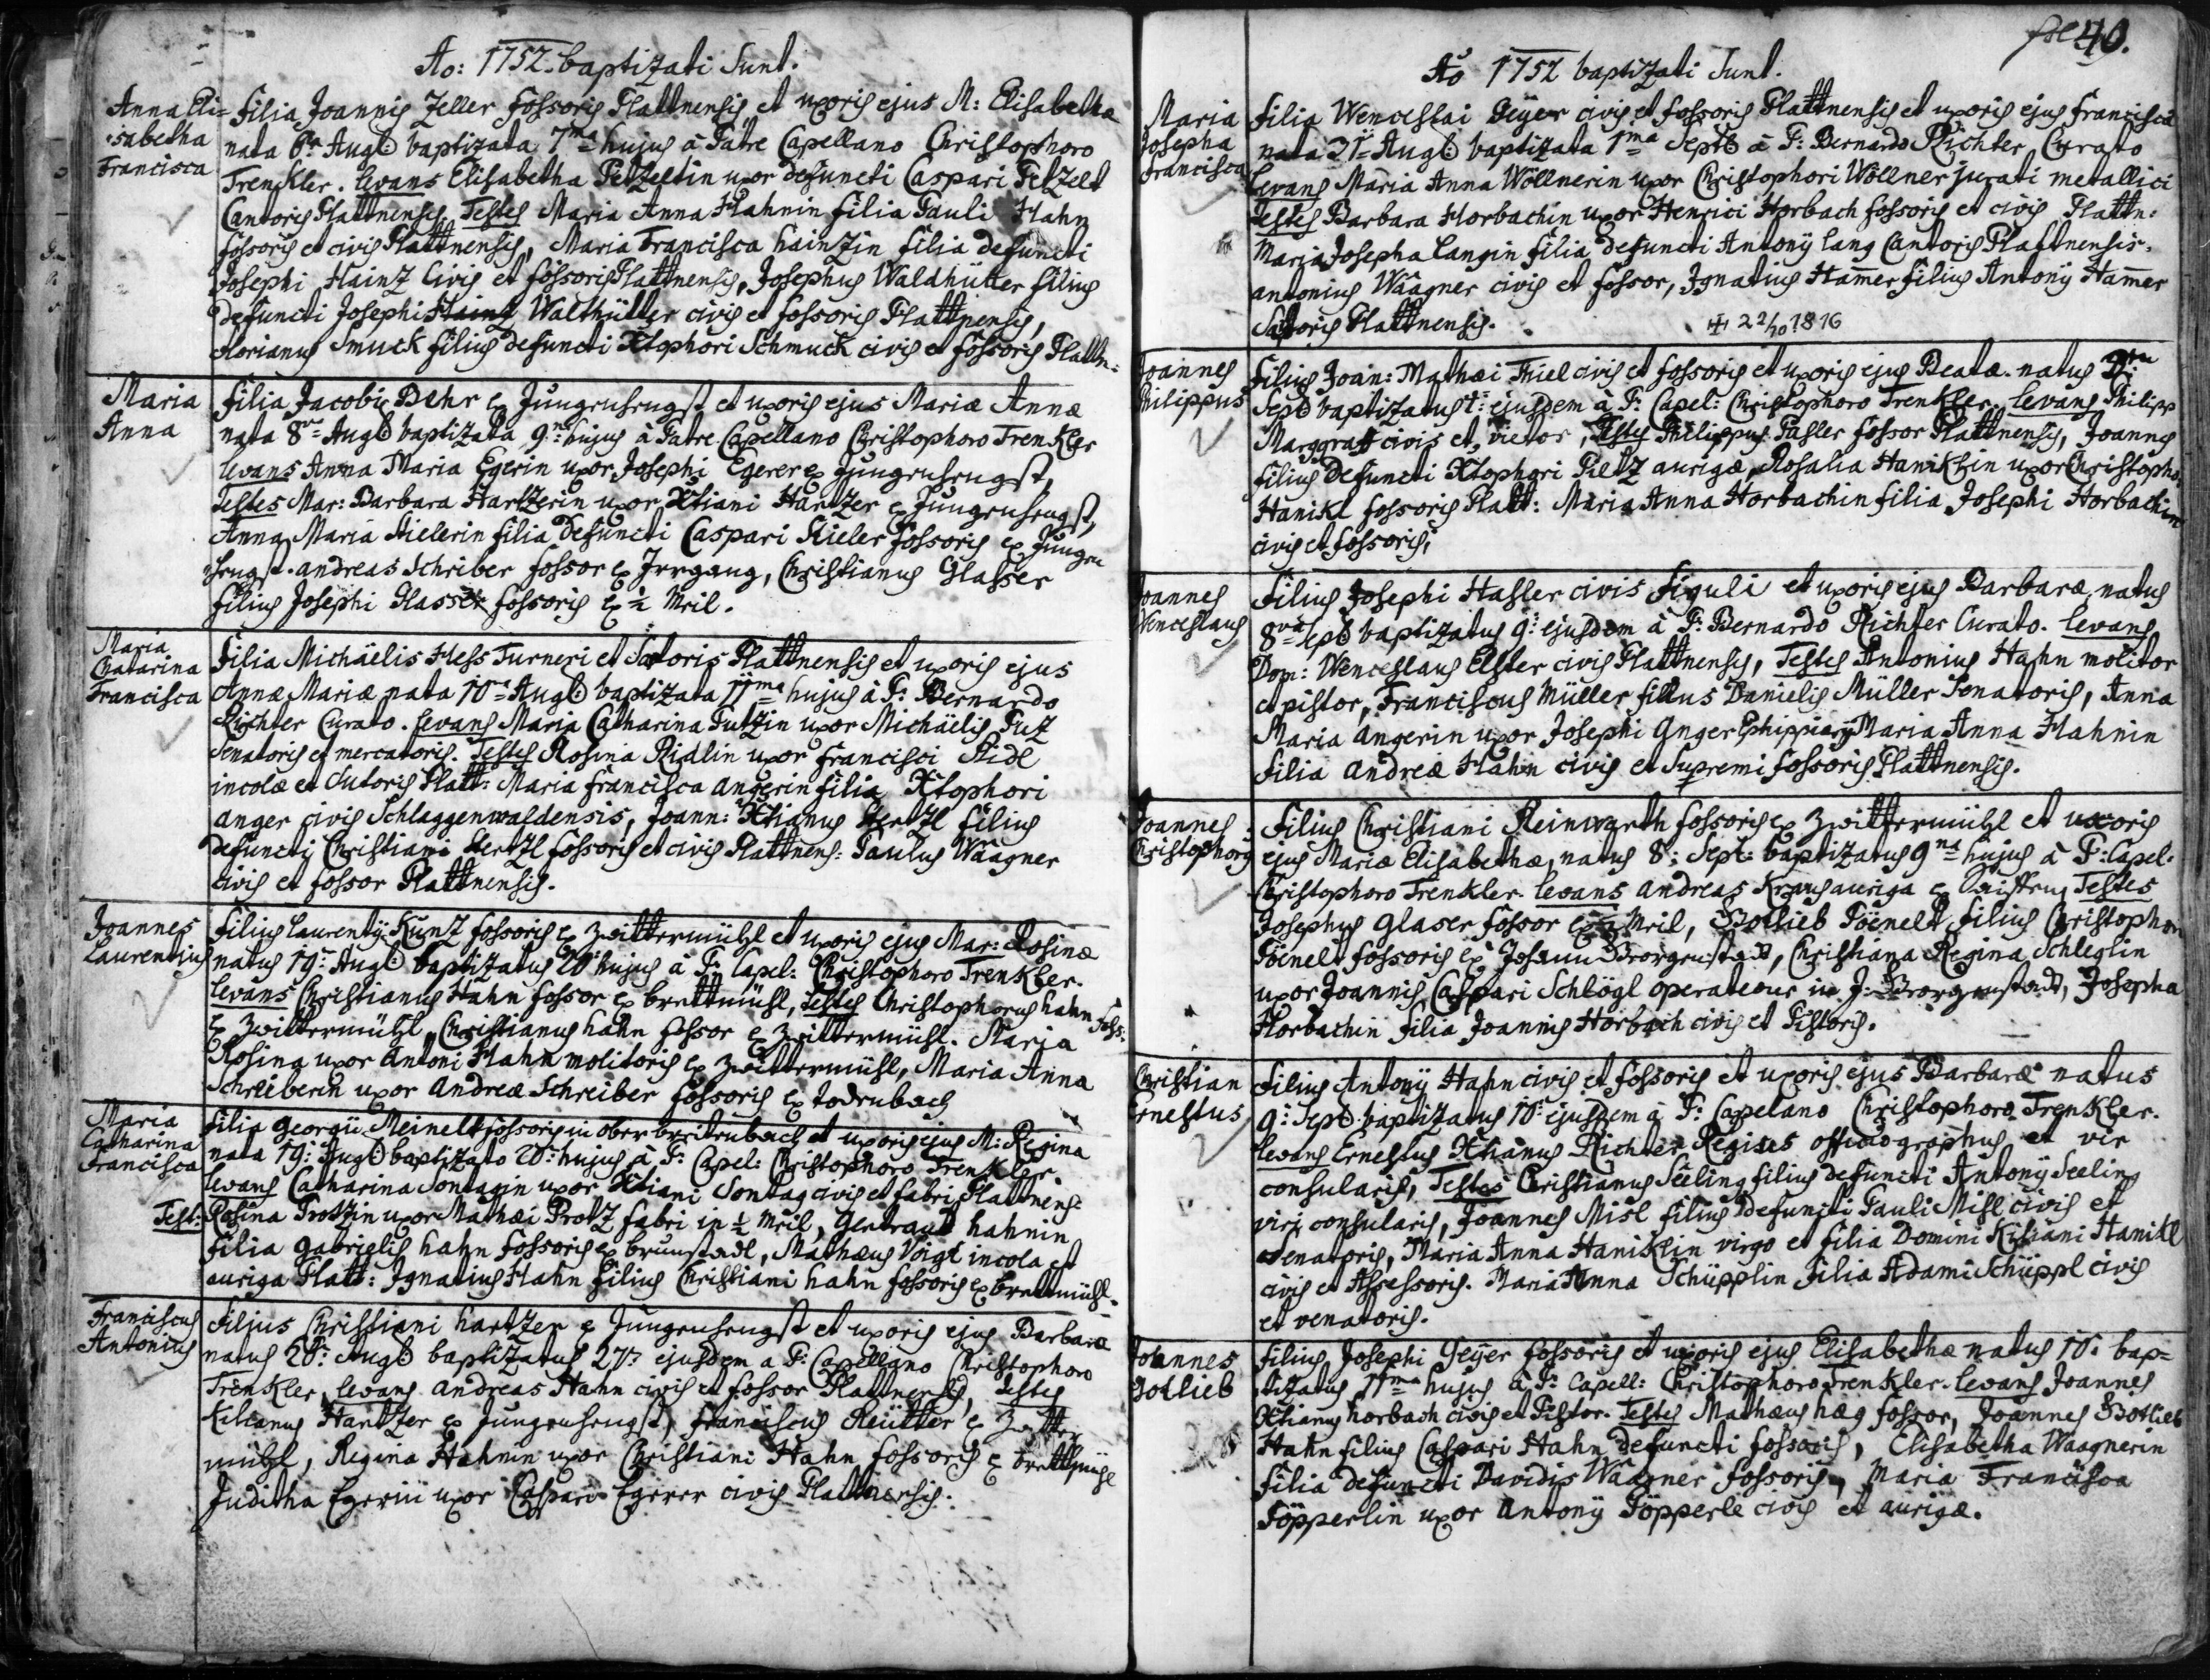 Ao: 1752. baptizati Sunt.
Anna Eli=
sabetha
Francisca
Filia Joannis Zeller Fossoris Plattnensis et uxoris ejus M: Elisabetha
nata 6ta Augt: baptizata 7ma hujus à Patre Capellano Christophoro
Trenkler. Levans Elisabetha Petzeltin uxor defuncti Caspari Petzelt
Cantoris Plattnensis. Testes Maria Anna Hahnin filia Pauli Hahn
fossoris et civis Plattnensis, Maria Francisca Hainzin filia defuncti
Josephi Hainz Civis et fossoris Plattnensis, Josephus Waldhütter filius
defuncti Josephi Hainz Walthütter civis et fossoris Plattnensis,
Florianus Smuck filius defuncti Xtophori Schmuck civis et fossoris Plattn=
Maria
Anna
Filia Jacobi Behr ex Jungenhengst et uxoris ejus Mariæ Annæ
nata 8va Augt baptizata 9na hujus à Patre Capellano Christophoro Trenkler
Levans Anna Maria Egerin uxor Josephi Egerer ex Jungenhengst,
Testes Mar: Barbara Hartzerin uxor Xtiani Hartzer ex Jungenhengst,
Anna Maria Hielerin filia defuncti Caspari Hieler fossoris ex Jungen
hengst. Andreas Schriber fossor ex Irrgang, Christianus Glasser
filius Josephi Glasser fossoris ex ½ Mril.
Maria
Chatarina
Francisca
Filia Michäelis Hess Turneri et Sartoris Plattnensis et uxoris ejus
Annæ Mariæ nata 10ma Augt: baptizata 11ma hujus à P: Bernardo
Richter Curato. Levans Maria Catharina Putzin uxor Michäelis Putz
Senatoris et mercatoris. Testes Rosina Ridlin uxor Francisci Ridl
incolæ et Sutoris Platt: Maria Francisca Angerin filia Xtophori
Anger civis Schlaggenwaldensis, Joann: Xtianus Hertzl filius
defuncti Christiani Hertzl fossoris et civis Plattnens: Paulus Waagner
civis et fossor Plattnensis.
Joannes
Laurentius
Filius Laurentij Kunz fossoris ex Zwittermühl et uxoris ejus Mar: Rosinæ
natus 19: Augt: baptizatus 20: hujus à P: Capel: Christophoro Trenkler.
Levans Christianus Hahn fossor ex brettmühl, Testes Christophorus hahn foss:
ex Zwittermühl, Christianus hahn fossor ex Zwittermühl. Maria
Rosina uxor Antoni Hahn molitoris ex Zwittermühl, Maria Anna
Schreiberin uxor Andreæ Schreiber fossoris ex todtnbach
Maria
Catharina
Francisca
Filia Georgii Meinelt fossoris in ober breitenbach et uxoris ejus M: Regina
nata 19: Augt baptizata 20: hujus à P: Capel: Christophoro Trenkler
Levans Catharina Sontagin uxor Xtiani Sontag civis et fabri Plattnens:
Test: Rosina Protzin uxor Mathæi Protz fabri in ½ Mril, Gertraud hahnin
filia Gabrielis hahn fossoris ex brunstadl, Mathæus Voigt incola et
auriga Platt: Ignatius Hahn filius Christiani hahn fossoris ex brettmühl.
Franciscus
Antonius
Filius Christiani hartzer ex Jungenhengst et uxoris ejus Barbaræ
natus 26: Augt: baptizatus 27: ejusdem a P: Capellano Christophoro
Trenkler, Levans Andreas Hahn civis et fossor Plattnensis, Testes
Kilianus Hartzer ex Jungenhengst, Franciscus Reütter ex Zwitter
mühl, Regina Hahnin uxor Christiani Hahn fossoris ex brettmühl
Juditha Egerin uxor Caspari Egerer civis Plattnensis.
fol 40.
Ao 1752 baptizati Sunt.
Maria
Josepha
Francisca
Filia Wenceslai Geÿer civis et fossoris Plattnensis et uxoris ejus Francisca
nata 31: Augt: baptizata 1ma Septb à P: Bernardo Richter, Curato
Levans Maria Anna Wöllnerin uxor Christophori Wöllner jurati metallici
Testes Barbara Horbachin uxor Henrici Horbach fossoris et civis Plattn:
Maria Josepha Langin filia defuncti Antonij Lang Cantoris Plattnensis.
Antonius Waagner civis et fossor, Ignatius Ham̄er filius Antonij Ham̄er
Sutoris Plattnensis.
22/10 1816
Joannes
Philippus
Filius Joan: Mathæi Thiel civis et fossoris et uxoris ejus Beatæ. natus 3tia
Septb baptizatus 4: ejusdem à P: Capel: Christophoro Trenkler. Levans Philipp
Marggraff civis et vietor, Testes Philippus Pasler fossor Plattnensis, Joannes
filius defuncti Xtophori Pietz aurigæ, Rosalia Haniklin uxor Christopho:
Hanikl fossoris Platt: Maria Anna Horbachin filia Josephi Horbachin
civis et fossoris.
Joannes
Wenceslaus
Filius Josephi Hasler civis figuli et uxoris ejus Barbaræ, natus
8va Septb baptizatus 9: ejusdem à P: Bernardo Richter Curato. Levans
Dom: Wenceslaus Elster civis Plattnensis, Testes Antonius Hahn molitor
et pistor, Franciscus Müller filius Danielis Müller Senatoris, Anna
Maria Angerin uxor Josephi Anger Ephippiarij Maria Anna Hahnin
filia Andreæ Hahn civis et Supremi fossoris Plattnensis.
Joannes
Christophorus
Filius Christiani Reinwarth fossoris ex Zwittermühl et uxoris
ejus Mariæ Elisabethæ, natus 8: Sept: baptizatus 9na hujus à P: Capel:
Christophoro Trenkler. Levans Andreas Kraus auriga ex Testes
Josephus Glaser fossor ex ½ Mril, Gottlieb Pöenelt filius Christophori
Pöenelt fossoris ex Johann Georgenstadt, Christiana Regina Schleglin
uxor Joannis Caspari Schlögl operateurs in J: Georgenstadt, Josepha
Horbachin filia Joannis Horbach civis et Pistoris.
Christian
Ernestus
Filius Antonij Hahn civis et fossoris et uxoris ejus Barbaræ natus
9: Septb baptizatus 10: ejusdem à P: Capelano Christophoro Trenkler.
Levans Ernestus Xtianus Richter Regius officiographus et vir
consularis, Testes Christianus Seeling filius defuncti Antonij Seeling
viri consularis, Joannes Misl filius defuncti Pauli Misl civis et
Senatoris, Maria Anna Haniklin virgo et filia Domini Kiliani Hanikl
civis et Assessoris. Maria Anna Schüpplin filia Adami Schüppl civis
et venatoris.
Joannes
Gotlieb
Filius Josephi Geÿer fossoris et uxoris ejus Elisabethæ natus 10: bap=
tizatus 11ma hujus à P: Capell: Christophoro Trenkler. Levans Joannes
Xtianus horbach civis et Pistor. Testes Mathæus hæg fossor, Joannes Gotlieb
Hahn filius Caspari Hahn defuncti fossoris, Elisabetha Waagnerin
filia defuncti Davidis Waagner fossoris, Maria Francisca
Töpperlin uxor Antonij Töpperle civis et aurigæ.